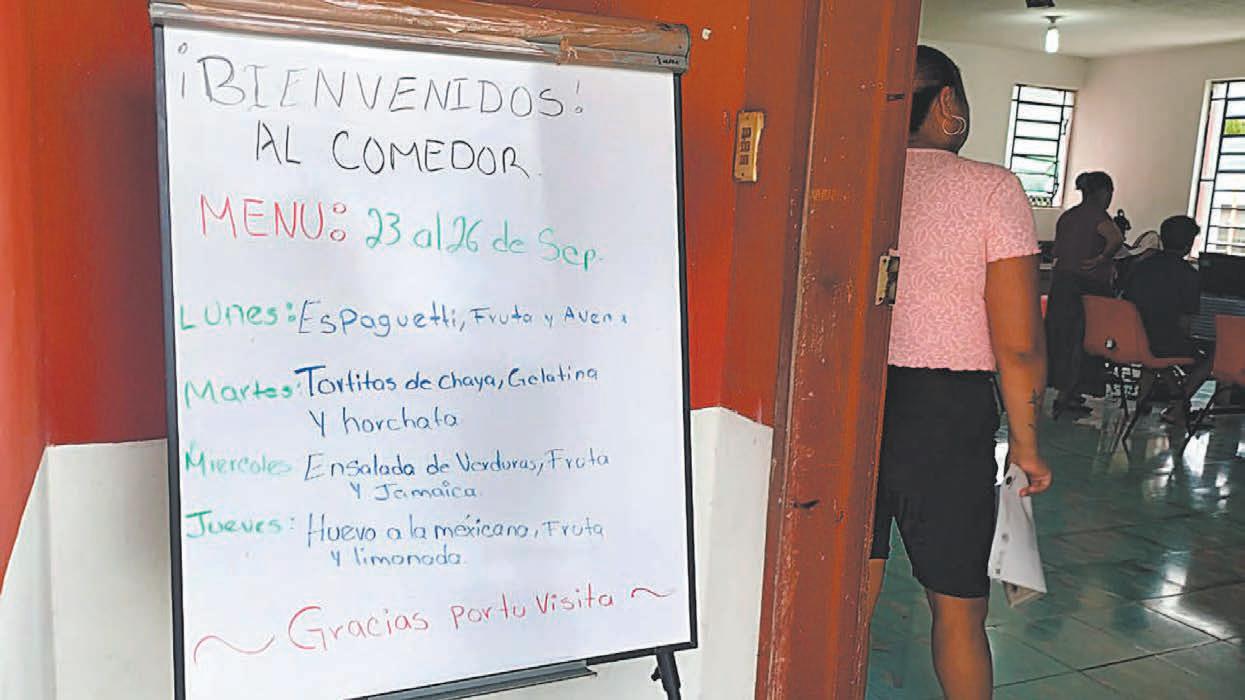 ¡BIENVENIDOS!
AL COMEDOR.
MENU: 23 al 26 de Sep.
Lunes: Espaguetti, Fruta y Avena
Martes: Tortitas de chaya, Gelatina
y horchata
Miercoles Ensalada de Verduras, Fruta
y Jamaica.
Jueves: Huevo a la mexicana, Fruta
y limonada.
~ Gracias por tu Visita ~